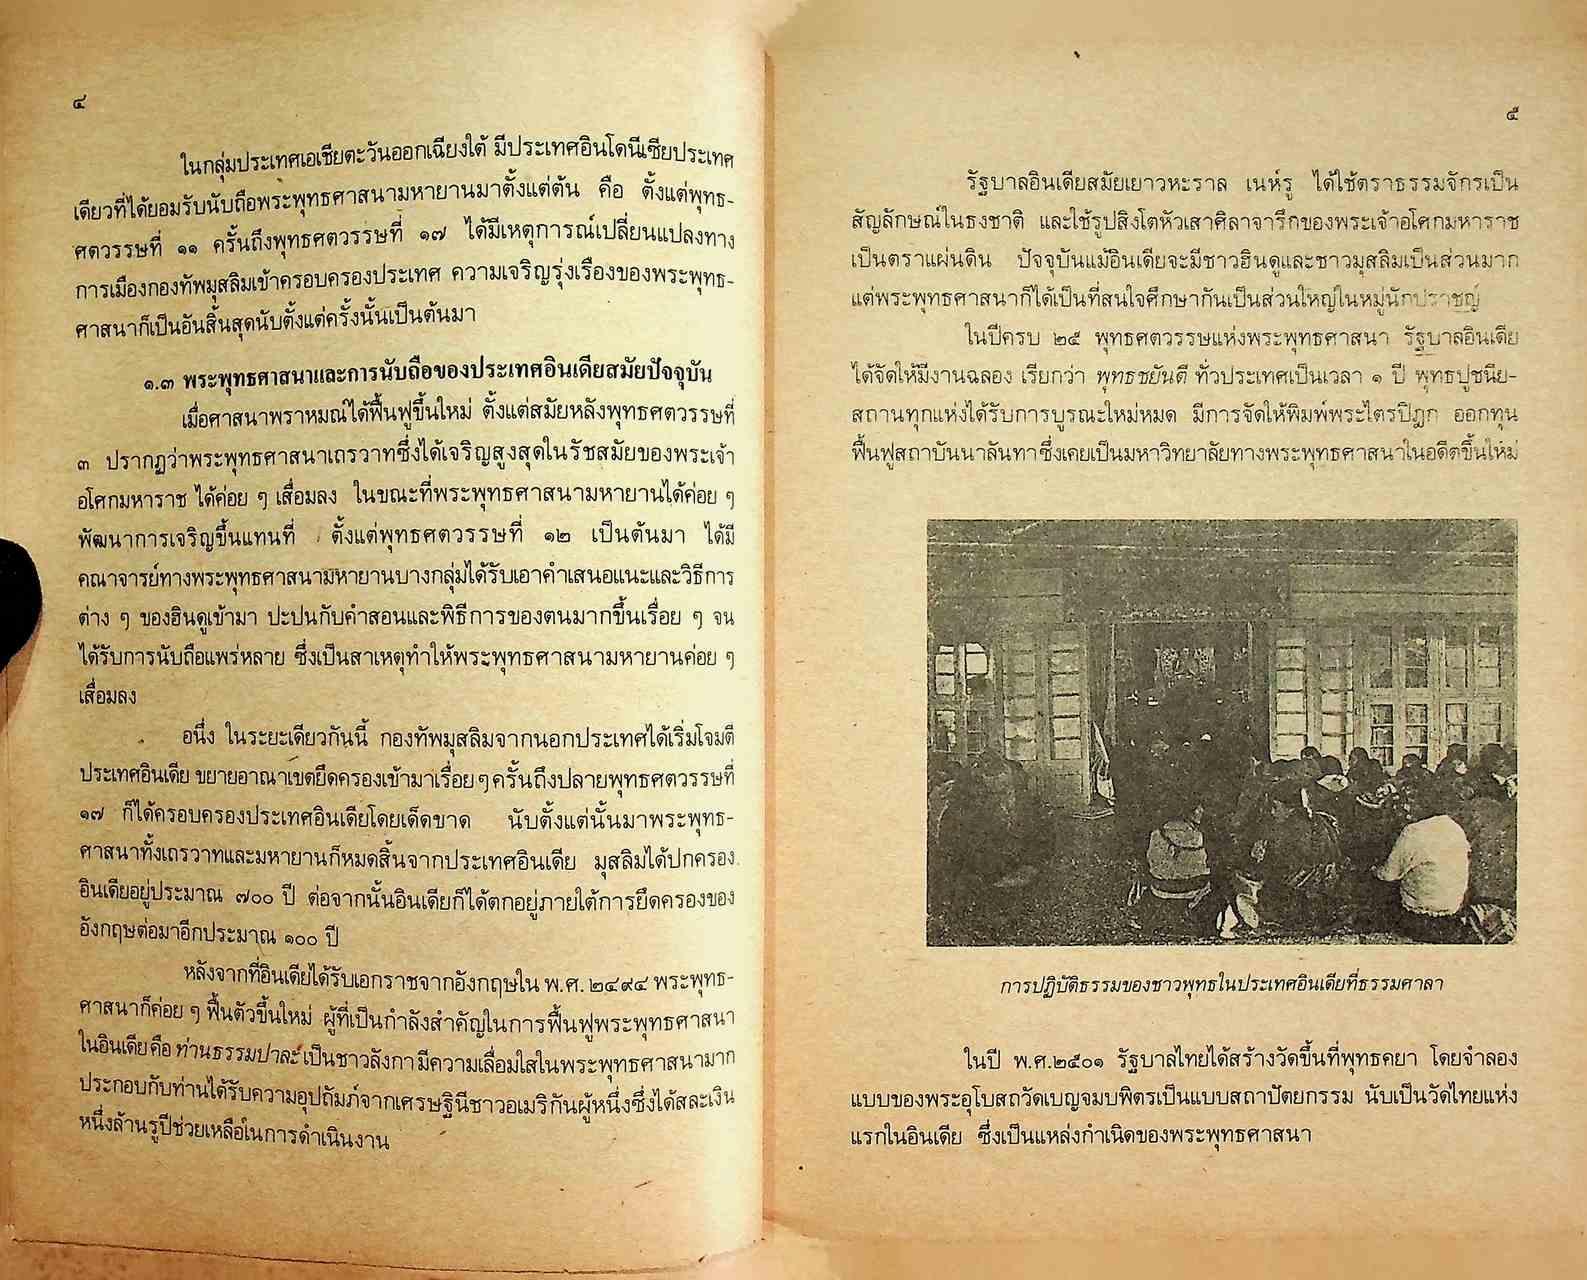 ๔
ในกลุ่มประเทศเอเชียตะวันออกเฉียงใต้ มีประเทศอินโดนีเซียประเทศ
เดียวที่ได้ยอมรับนับถือพระพุทธศาสนามหายานมาตั้งแต่ต้น คือ ตั้งแต่พุทธ-
ศตวรรษที่ ๑๑ ครั้นถึงพุทธศตวรรษที่ ๑๗ ได้มีเหตุการณ์เปลี่ยนแปลงทาง
การเมืองกองทัพมุสลิมเข้าครอบครองประเทศ ความเจริญรุ่งเรืองของพระพุทธ-
ศาสนาก็เป็นอันสิ้นสุดนับตั้งแต่ครั้งนั้นเป็นต้นมา
๑.๓ พระพุทธศาสนาและการนับถือของประเทศอินเดียสมัยปัจจุบัน
เมื่อศาสนาพราหมณ์ได้ฟื้นฟูขึ้นใหม่ ตั้งแต่สมัยหลังพุทธศตวรรษที่
๓ ปรากฏว่าพระพุทธศาสนาเถรวาทซึ่งได้เจริญสูงสุดในรัชสมัยของพระเจ้า
อโศกมหาราช ได้ค่อย ๆ เสื่อมลง ในขณะที่พระพุทธศาสนามหายานได้ค่อย ๆ
พัฒนาการเจริญขึ้นแทนที่ ตั้งแต่พุทธศตวรรษที่ ๑๒ เป็นต้นมา ได้มี
คณาจารย์ทางพระพุทธศาสนามหายานบางกลุ่มได้รับเอาคำเสนอแนะและวิธีการ
ต่าง ๆ ของฮินดูเข้ามา ปะปนกับคำสอนและพิธีการของตนมากขึ้นเรื่อย ๆ จน
ได้รับการนับถือแพร่หลาย ซึ่งเป็นสาเหตุทำให้พระพุทธศาสนามหายานค่อย ๆ
เสื่อมลง
อนึ่ง ในระยะเดียวกันนี้ กองทัพมุสลิมจากนอกประเทศได้เริ่มโจมตี
ประเทศอินเดีย ขยายอาณาเขตยึดครองเข้ามาเรื่อย ๆ ครั้นถึงปลายพุทธศตวรรษที่
๑๗ ก็ได้ครอบครองประเทศอินเดียโดยเด็ดขาด นับตั้งแต่นั้นมาพระพุทธ-
ศาสนาทั้งเถรวาทและมหายานก็หมดสิ้นจากประเทศอินเดีย มุสลิมได้ปกครอง
อินเดียอยู่ประมาณ ๗๐๐ ปี ต่อจากนั้นอินเดียก็ได้ตกอยู่ภายใต้การยึดครองของ
อังกฤษต่อมาอีกประมาณ ๑๐๐ ปี
หลังจากที่อินเดียได้รับเอกราชจากอังกฤษใน พ.ศ. ๒๔๙๔ พระพุทธ-
ศาสนาก็ค่อย ๆ ฟื้นตัวขึ้นใหม่ ผู้ที่เป็นกำลังสำคัญในการฟื้นฟูพระพุทธศาสนา
ในอินเดีย คือ ท่านธรรมปาละ เป็นชาวลังกา มีความเลื่อมใสในพระพุทธศาสนามาก
ประกอบกับท่านได้รับความอุปถัมภ์จากเศรษฐินีชาวอเมริกันผู้หนึ่งซึ่งได้สละเงิน
หนึ่งล้านรูปีช่วยเหลือในการดำเนินงาน
๕
รัฐบาลอินเดียสมัยเยาวหะราล เนห์รู ได้ใช้ตราธรรมจักรเป็น
สัญลักษณ์ในธงชาติ และใช้รูปสิงโตหัวเสาศิลาจารึกของพระเจ้าอโศกมหาราช
เป็นตราแผ่นดิน ปัจจุบันแม้อินเดียจะมีชาวฮินดูและชาวมุสลิมเป็นส่วนมาก
แต่พระพุทธศาสนาก็ได้เป็นที่สนใจศึกษากันเป็นส่วนใหญ่ในหมู่นักปราชญ์
ในปีครบ ๒๕ พุทธศตวรรษแห่งพระพุทธศาสนา รัฐบาลอินเดีย
ได้จัดให้มีงานฉลอง เรียกว่า พุทธชยันตี ทั่วประเทศเป็นเวลา ๑ ปี พุทธปูชนีย-
สถานทุกแห่งได้รับการบูรณะใหม่หมด มีการจัดให้พิมพ์พระไตรปิฎก ออกทุน
ฟื้นฟูสถาบันนาลันทาซึ่งเคยเป็นมหาวิทยาลัยทางพระพุทธศาสนาในอดีตขึ้นใหม่
การปฏิบัติธรรมของชาวพุทธในประเทศอินเดียที่ธรรมศาลา
ในปี พ.ศ.๒๕๐๑ รัฐบาลไทยได้สร้างวัดขึ้นที่พุทธคยา โดยจำลอง
แบบของพระอุโบสถวัดเบญจมบพิตรเป็นแบบสถาปัตยกรรม นับเป็นวัดไทยแห่ง
แรกในอินเดีย ซึ่งเป็นแหล่งกำเนิดของพระพุทธศาสนา